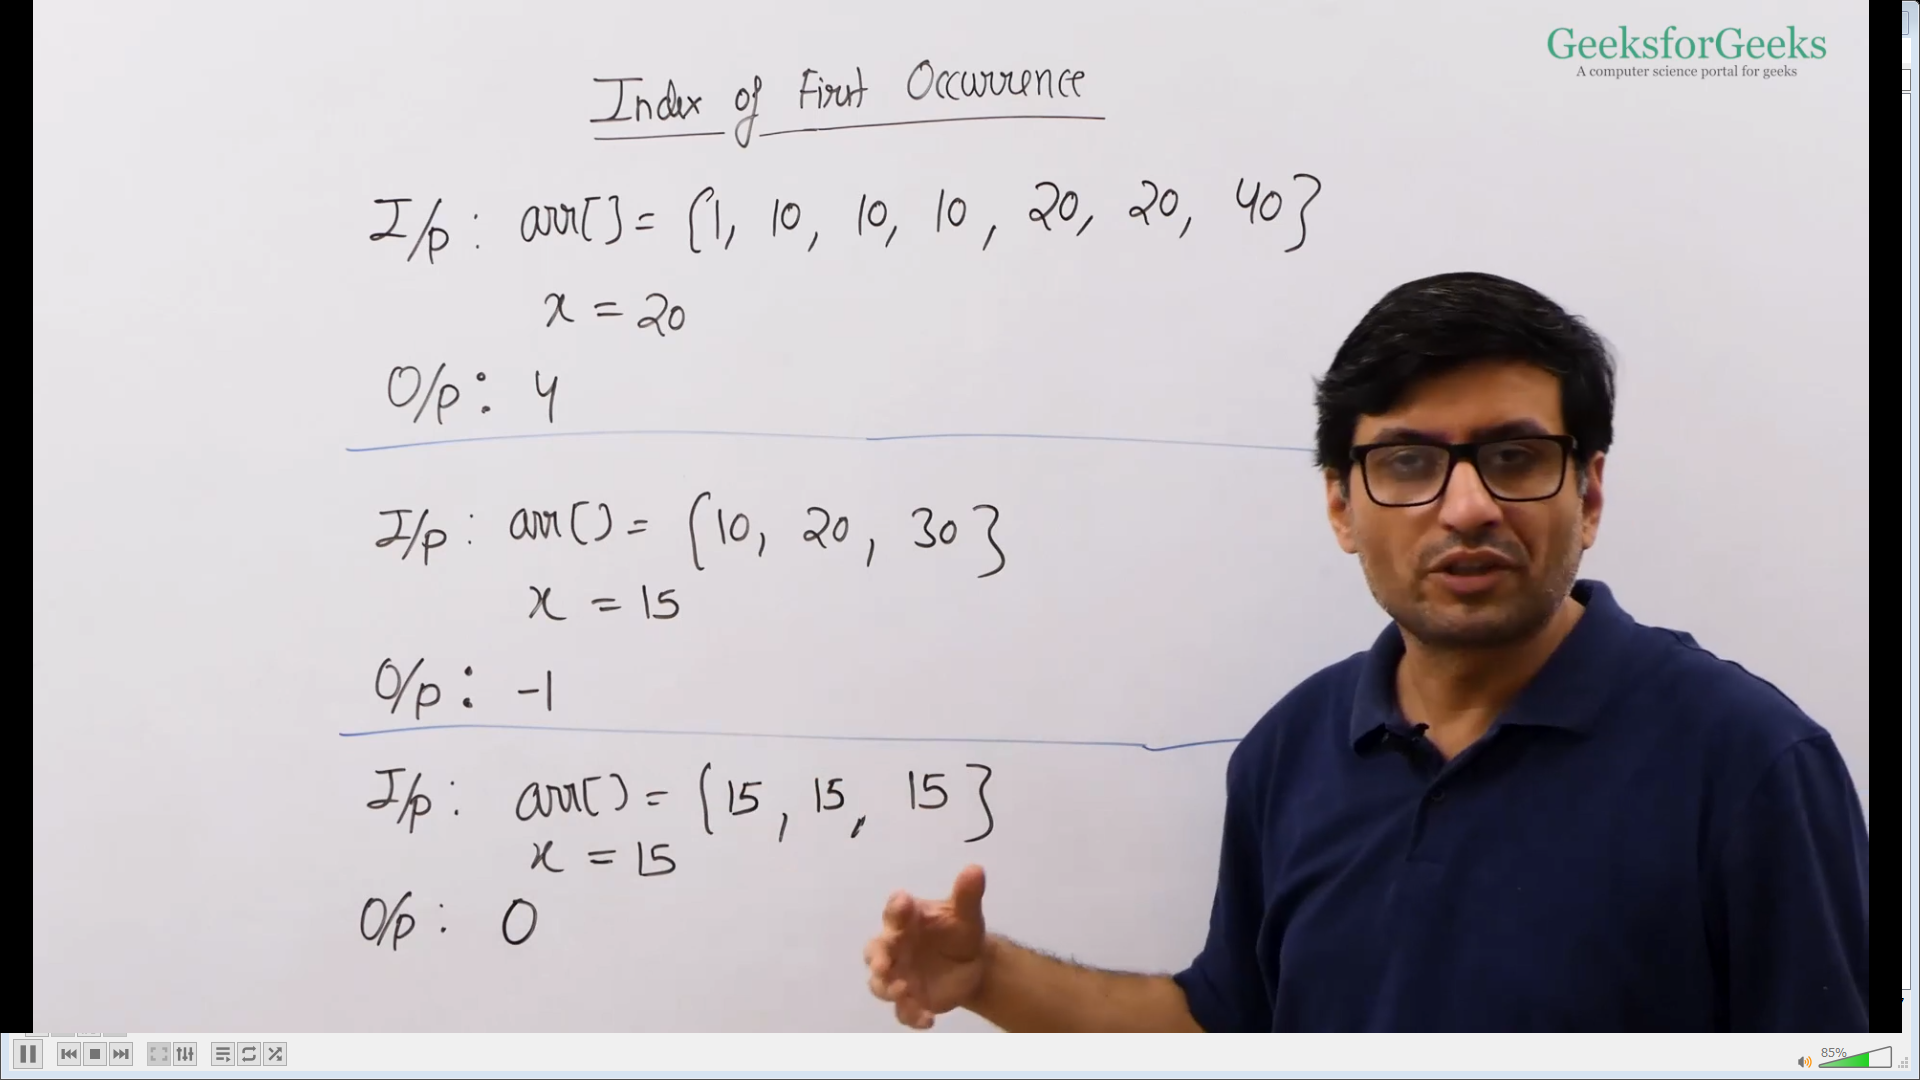 GeeksforGeeks
A computer science portal for geeks
Index of First Occurrence
I/p : arr[] = {1, 10, 10, 10, 20, 20, 40}
x = 20
O/p : 4
I/p : arr[] = {10, 20, 30}
x = 15
O/p : -1
I/p : arr[] = {15, 15, 15}
x = 15
O/p : 0
85%